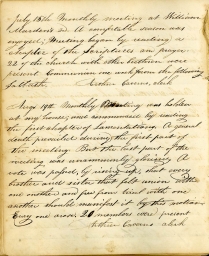 July 15th Monthly meeting at William
Marden's. A comfortable season was
enjoyed. Meeting began by reading a
chapter of the scriptures and prayer
22 of the church with other bretheren were
present Communion on the following
sabbath. Arthur Caverno, clerk
Augt 19th Monthly Meeting was holden
at my house, and commenced by reading
the first chapter of Lamentations. A great
death prevailed during the first part of
the meeting. But the last part of the
meeting was unanimously glorious. A
vote was passed, by rising up, that every
brother and sister that felt union with
one another and fee from trial with one
another should manifest it by this motion
Every one arose. 20 members were present
Arthur Caverno clerk